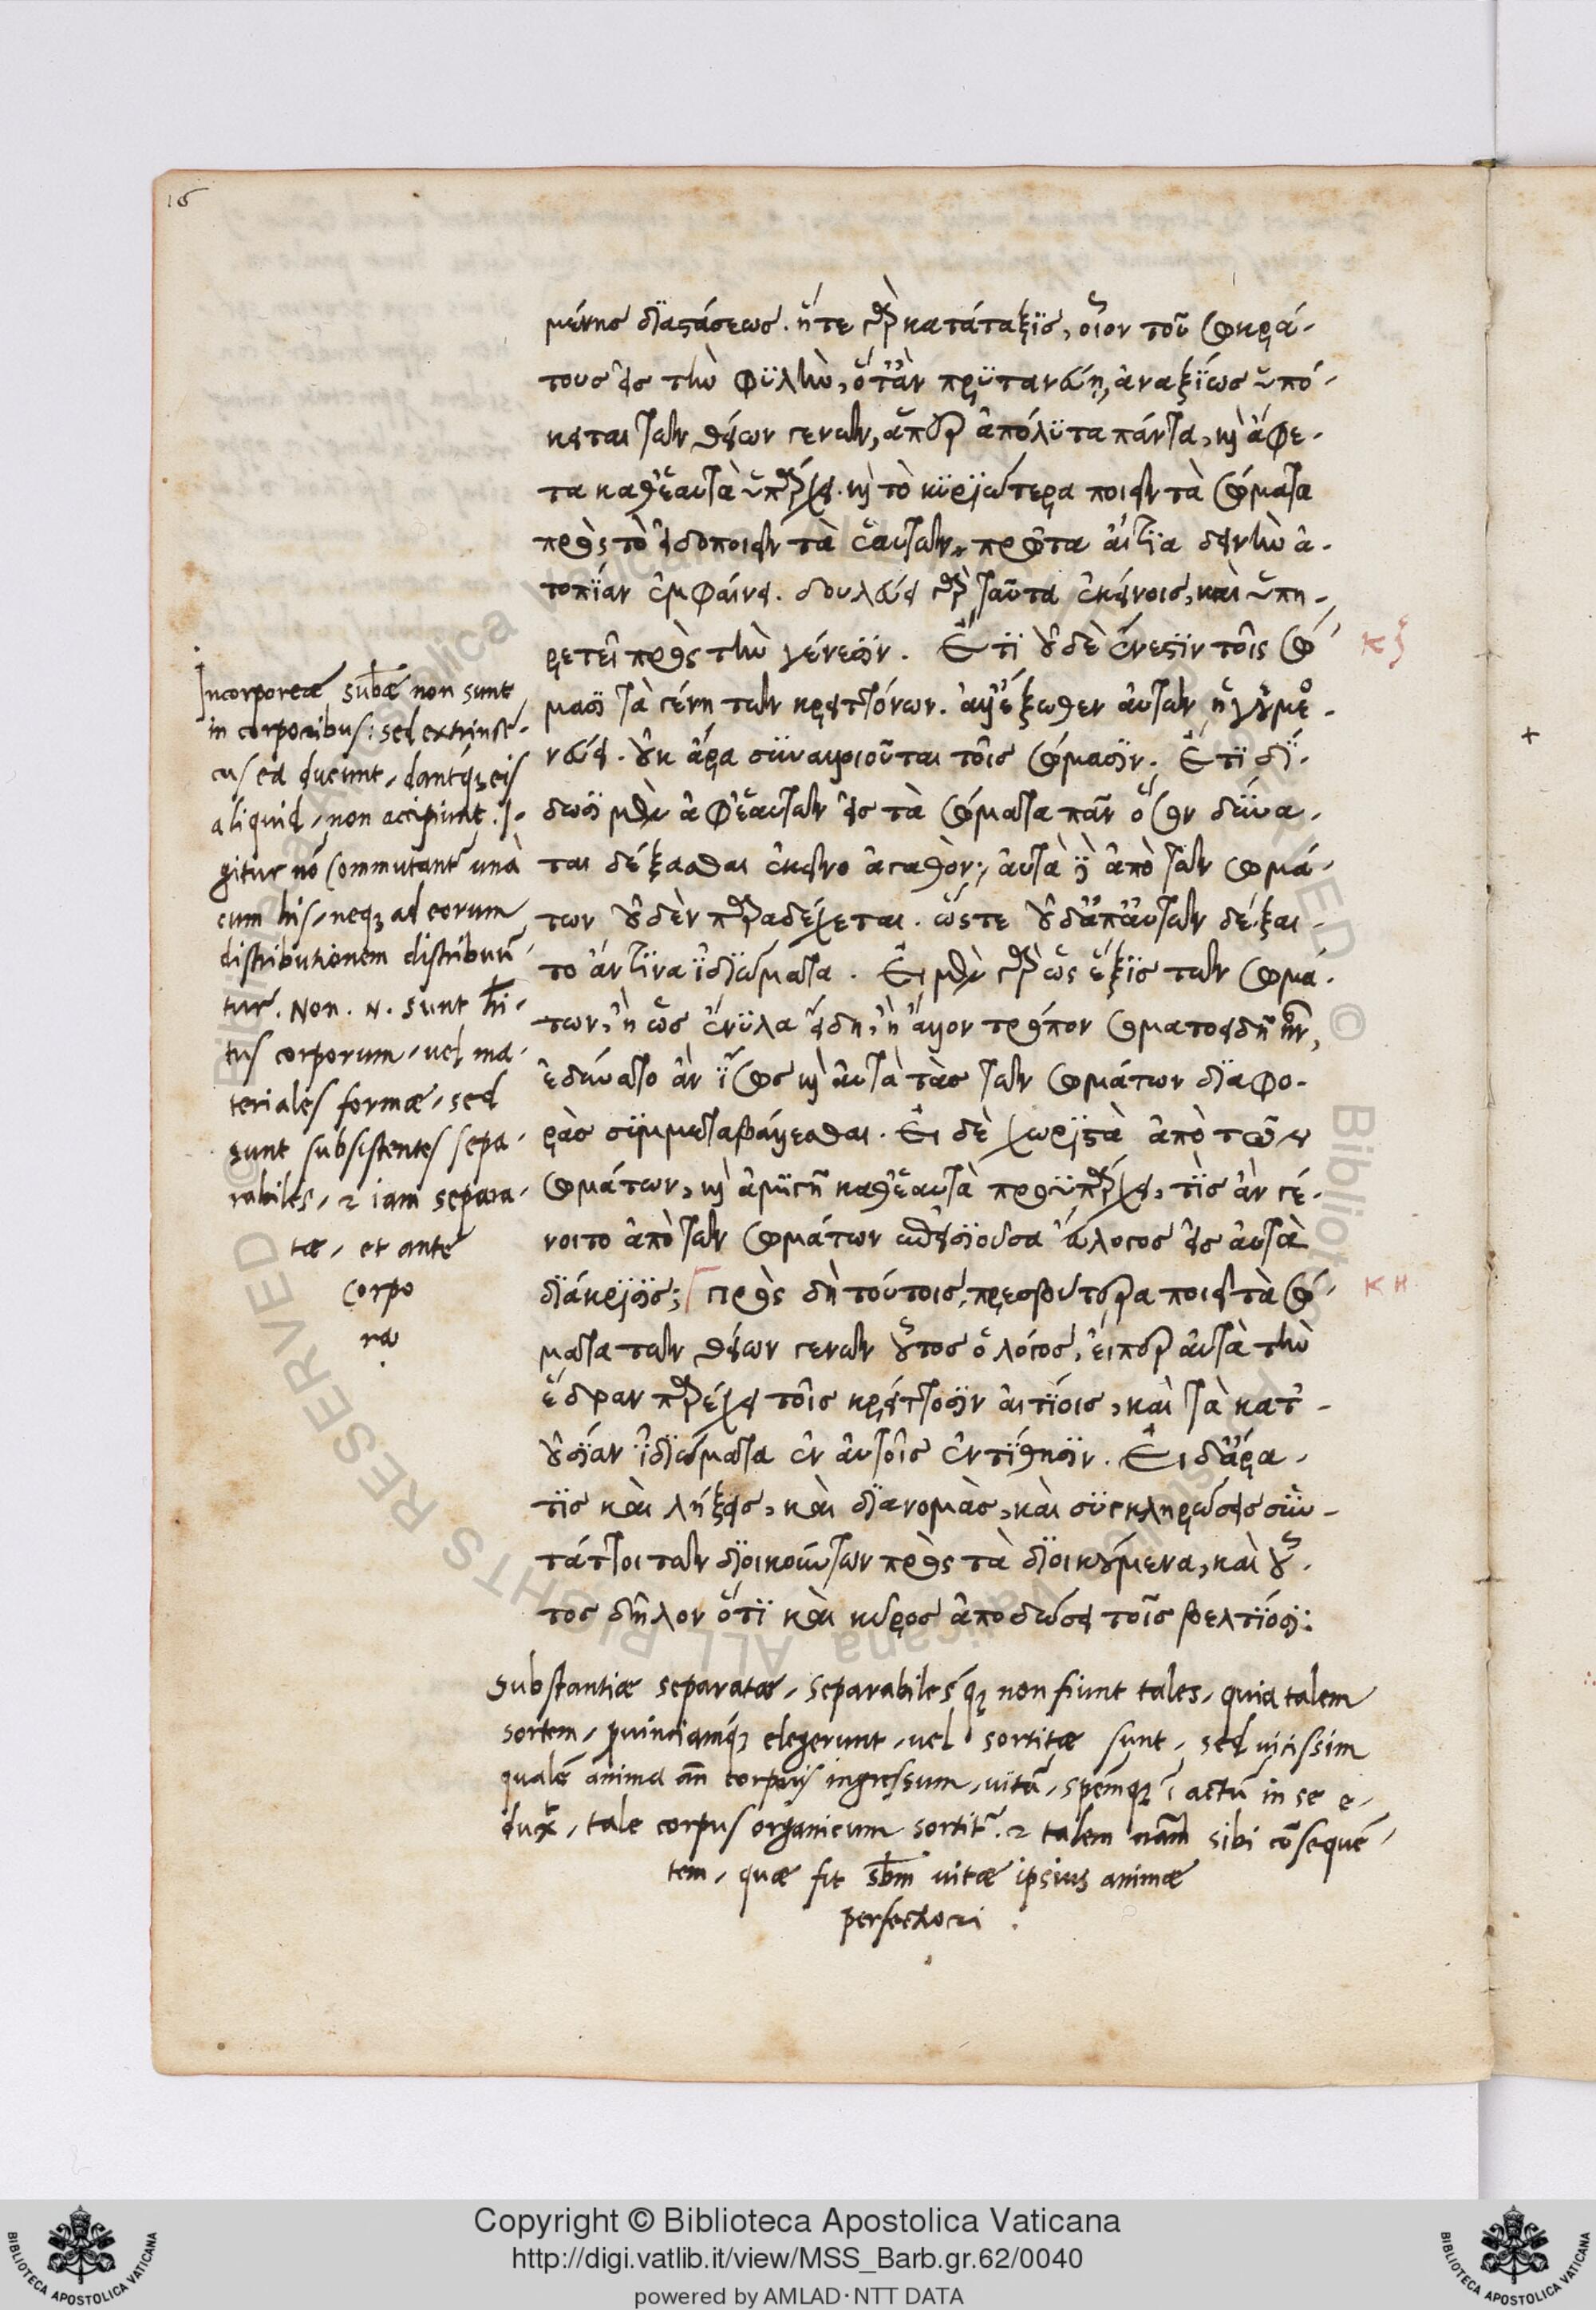 16
μένης διαστάσεως. ἥτε γὰρ κατάταξις, οἷον τοῦ σωκρά-
τους εἰς τὴν φυλὴν, ὅταν πρυτανεύῃ, ἀναξίως ὑπό-
κειται τῶν θείων γενῶν, ἅπερ ἀπόλυτα πάντα, καὶ ἄφε-
τα καθ' ἑαυτὰ ὑπάρχει. καὶ τὸ κυριώτερα ποιεῖν τὰ σώματα
πρὸς τὸ εἰδοποιεῖν τὰ ἑαυτῶν πρῶτα αἴτια δεινὴν ἀ-
τοπίαν ἐμφαίνει. δουλεύει γὰρ ταῦτα ἐκείνοις, καὶ ὑπη-
ρετεῖ πρὸς τὴν γένεσιν. Ἔτι οὐδὲ ἔνεστιν τοῖς σώ-
κζ
μασι τὰ γένη τῶν κρειττόνων. ἀλλ' ἔξωθεν αὐτῶν ἡγεμο-
νεύει. οὐκ ἄρα συναλλοιοῦται τοῖς σώμασιν. Ἔτι δί-
δωσι μὲν ἀφ' ἑαυτῶν εἰς τὰ σώματα πᾶν ὅσον δύνα-
ται δέξασθαι ἐκεῖνο ἀγαθόν, αὐτὰ δὲ ἀπὸ τῶν σωμά-
των οὐδὲν παραδέχεται. ὥστε οὐδ' ἂν ἀπ' αὐτῶν δέξαι-
το ἄν τινα ἰδιώματα. Εἰ μὲν γὰρ ὡς ἕξις τῶν σωμά-
των, ἢ ὡς ἔνυλα εἴδη, ἢ ἄλλον τρόπον σωματοειδῆ ἦν,
ἐδύνατο ἂν ἴσως καὶ αὐτὰ τὰς τῶν σωμάτων διαφο-
ρὰς συμμεταβάλλεσθαι. Εἰ δὲ χωριστὰ ἀπὸ τῶν
σωμάτων, καὶ ἀμιγῆ καθ' ἑαυτὰ προϋπάρχει, τίς ἂν γέ-
νοιτο ἀπὸ τῶν σωμάτων ὡθεισιοῦσα ἄλογος εἰς αὐτὰ
διάκρισις; πρὸς δὴ τούτοις, πρεσβύτερα ποιεῖ τὰ σώ-
κη
ματα τῶν θείων γενῶν οὗτος ὁ λόγος, εἴπερ αὐτὰ τὴν
ἕδραν παρέχει τοῖς κρείττοσιν αἰτίοις, καὶ τὰ κατ'
οὐσίαν ἰδιώματα ἐν αὐτοῖς ἐντίθησιν. Εἰ δ' ἄρα
τις καὶ λήξεις, καὶ διανομὰς, καὶ συγκληρώσεις συν-
τάττοι τῶν διοικούντων πρὸς τὰ διοικούμενα, καὶ οὗ-
τος δῆλον ὅτι καὶ κῦρος ἀποδώσει τοῖς βελτίοσι:
Incorporeæ subæ non sunt
in corporibus: sed extrinse-
cus ea ducunt, dantq; eis
aliquid, non accipiunt. I-
gitur nō commutantur unà
cum his, neq; ad eorum
distributionem distribuũ-
tur. Non. n. sunt hi-
tus corporum, uel ma-
teriales formæ, sed
sunt subsistentes sepa-
rabiles, & iam separa-
tæ, et ante
corpo
ra
Substantiæ separatæ, separabilesq; non fiunt tales, quia talem
sortem, puinciamq; elegerunt, uel sortitæ sunt, sed uicissim
qualē anima añ corporis ingressum, uitã, spēmq; ĩ actũ in se e-
dux̃, tale corpus organicum sortit̃. & talem nãm sibi cōsequē-
tem, quæ fit sbm uitæ ipsius animæ
perfectiori.
Copyright © Biblioteca Apostolica Vaticana
http://digi.vatlib.it/view/MSS_Barb.gr.62/0040
powered by AMLAD·NTT DATA